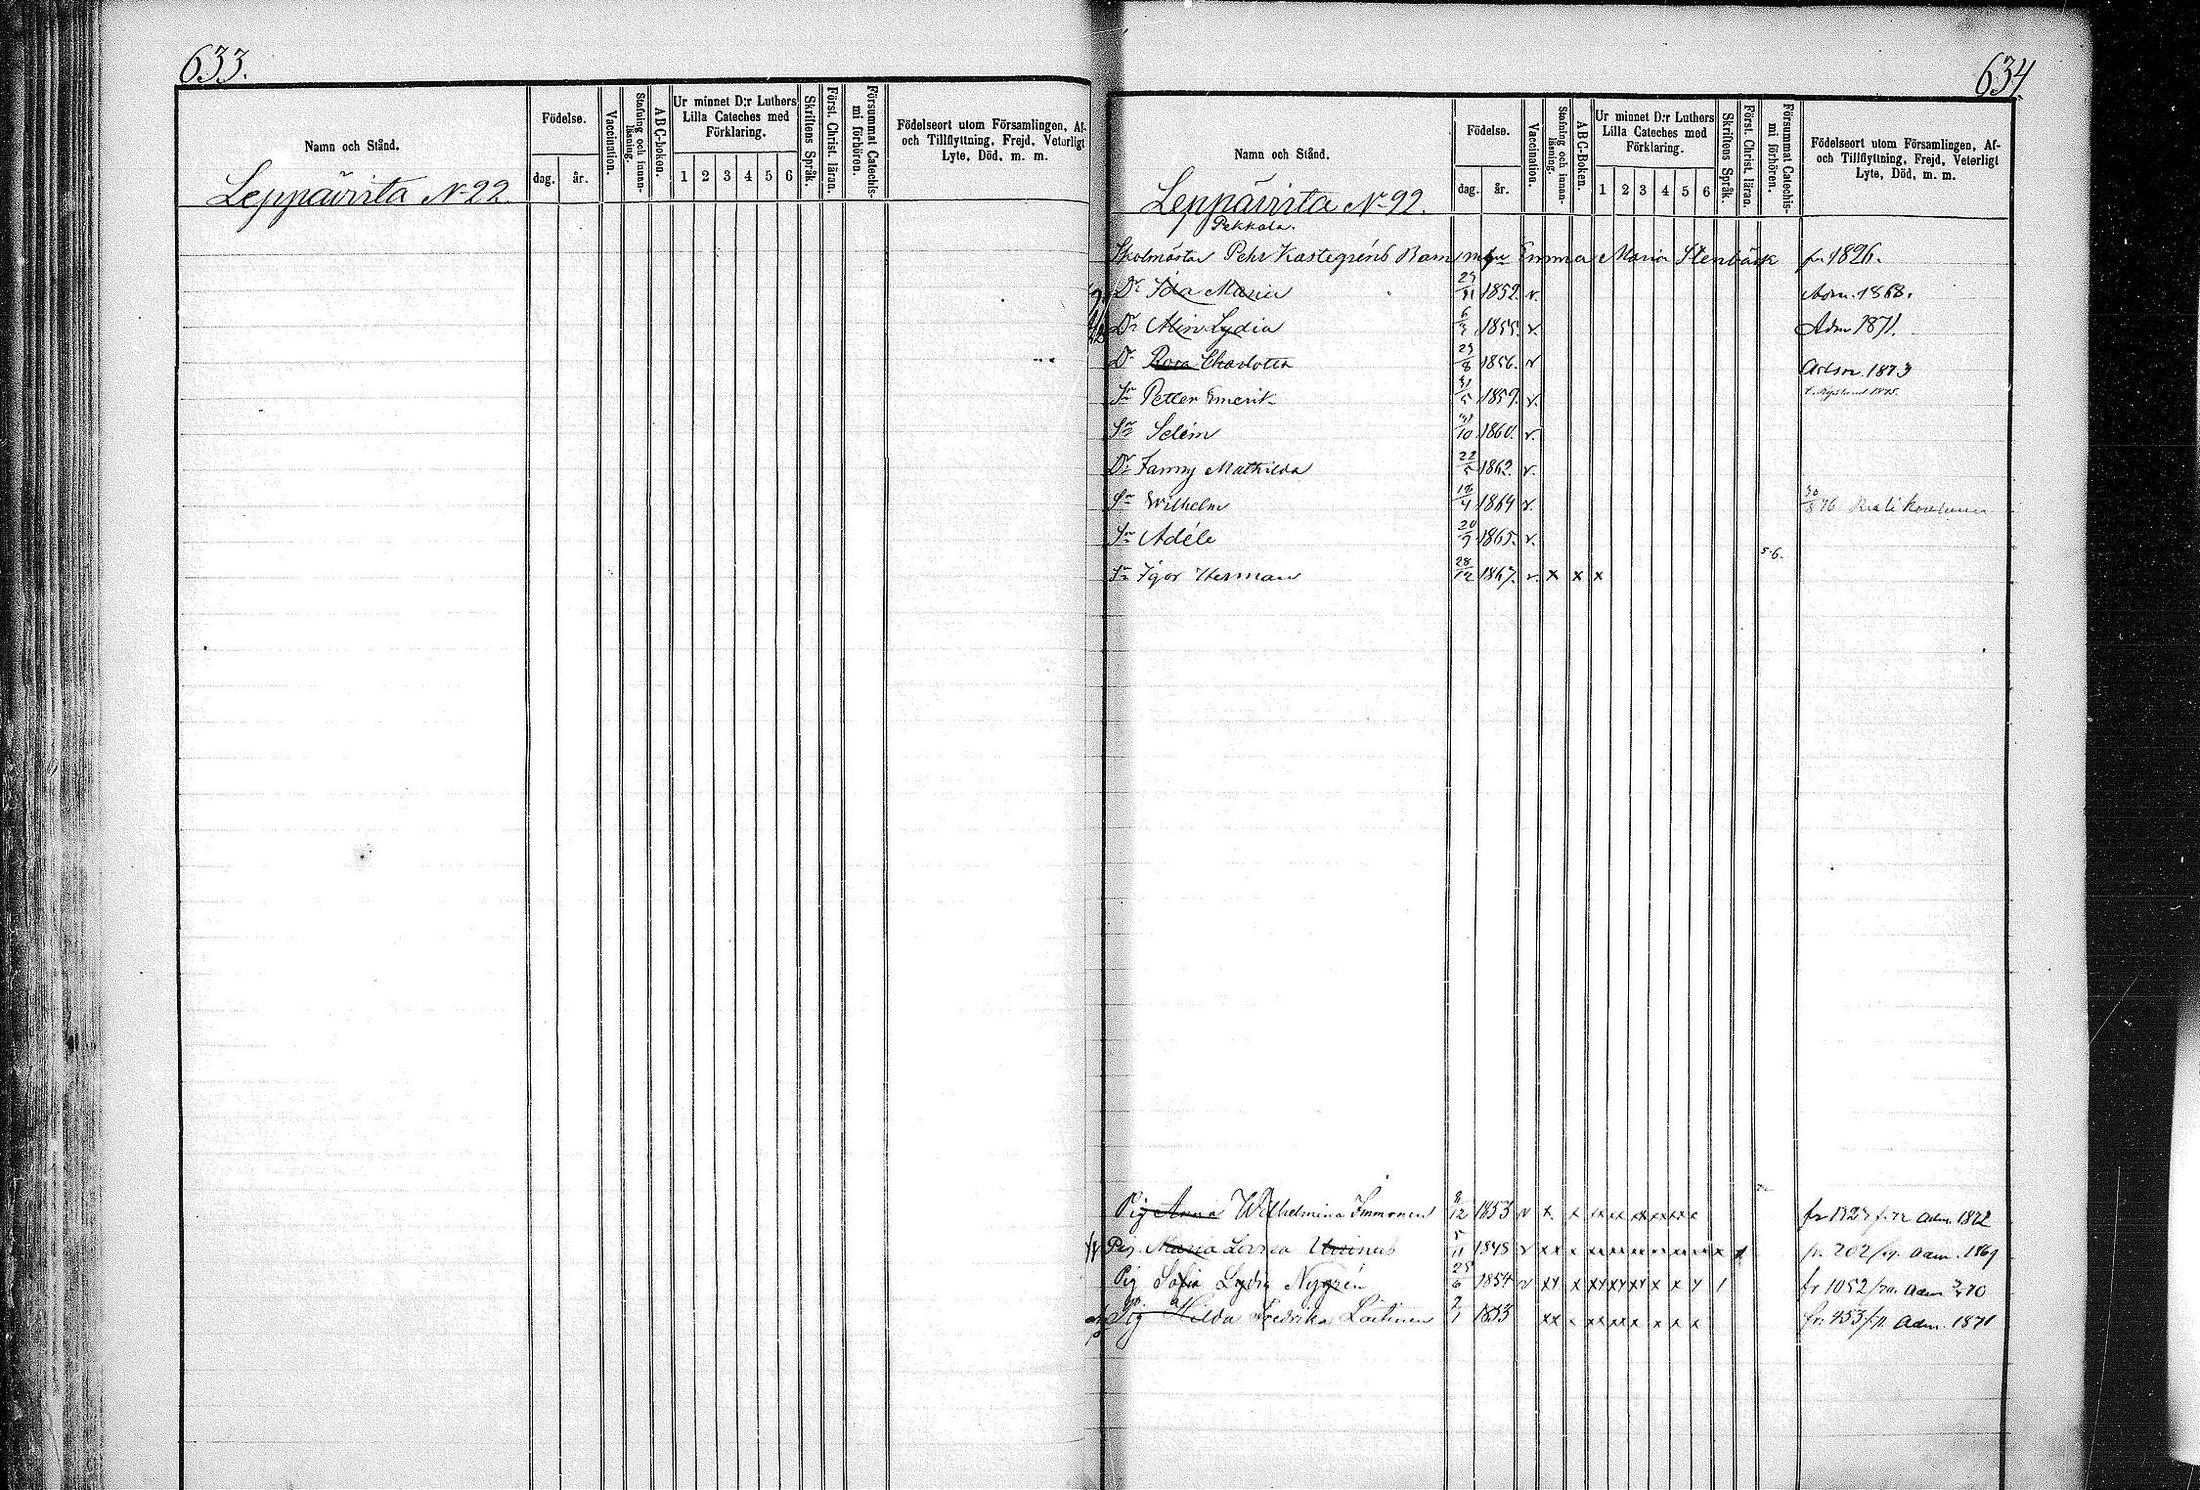 633.
Namn och Stånd.
Födelse.
dag. år.
Vaccination.
Stafning och innanläsning.
ABC-boken.
Ur minnet D:r Luthers
Lilla Cateches med
Förklaring.
1 2 3 4 5 6
Skriftens Språk.
Först. Christ. läran.
Försummat Catechismi förhören.
Födelseort utom Församlingen, Af-
och Tillflyttning, Frejd, Veterligt
Lyte, Död, m. m.
Leppävirta N 22.
634.
Namn och Stånd.
Födelse.
dag. år.
Vaccination.
Stafning och innanläsning.
ABC-Boken.
Ur minnet D:r Luthers
Lilla Cateches med
Förklaring.
1 2 3 4 5 6
Skriftens Språk.
Först. Christ. läran.
Försummat Catechismi förhören.
Födelseort utom Församlingen, Af-
och Tillflyttning, Frejd, Veterligt
Lyte, Död, m. m.
Leppävirta N 22.
Pekkala.
Skolmästar Pehr Kastegréns Barn Emma Maria Stenbäck fr. 1826.
Dr Ida Maria 1852. v. Adm. 1868.
Dr Lydia 1855. v. Adm 1871.
Dr Rosa Charlotta 29/8 1856. v 1873
Sn Petter Emerik 31/5 1859. v.
Sn Selim 10 1860. v.
Dr Fanny Mathilda 22/5 1862. v.
Sn Wilhelm 4 1864 v.
Sn Adéle 20 1865. v.
5-6.
Sn Igor Herman 28/12 1867. v. x x x
Pig Anna Wilhelmina Immonen 8/12 1853 v x. x xx xx xx xx xx x adm. 1872
Pig Maria Lovisa 5/11 1848 v xx x fr. 202/69. adm. 1869
Pig Sofia Lydia Nygrén 25/6 1854 v fr 1052/70. adm 70
Pig Hilda Fredrika Laitinen 1853 xx x xx xx x x x x fr. 453/71 adm. 1871